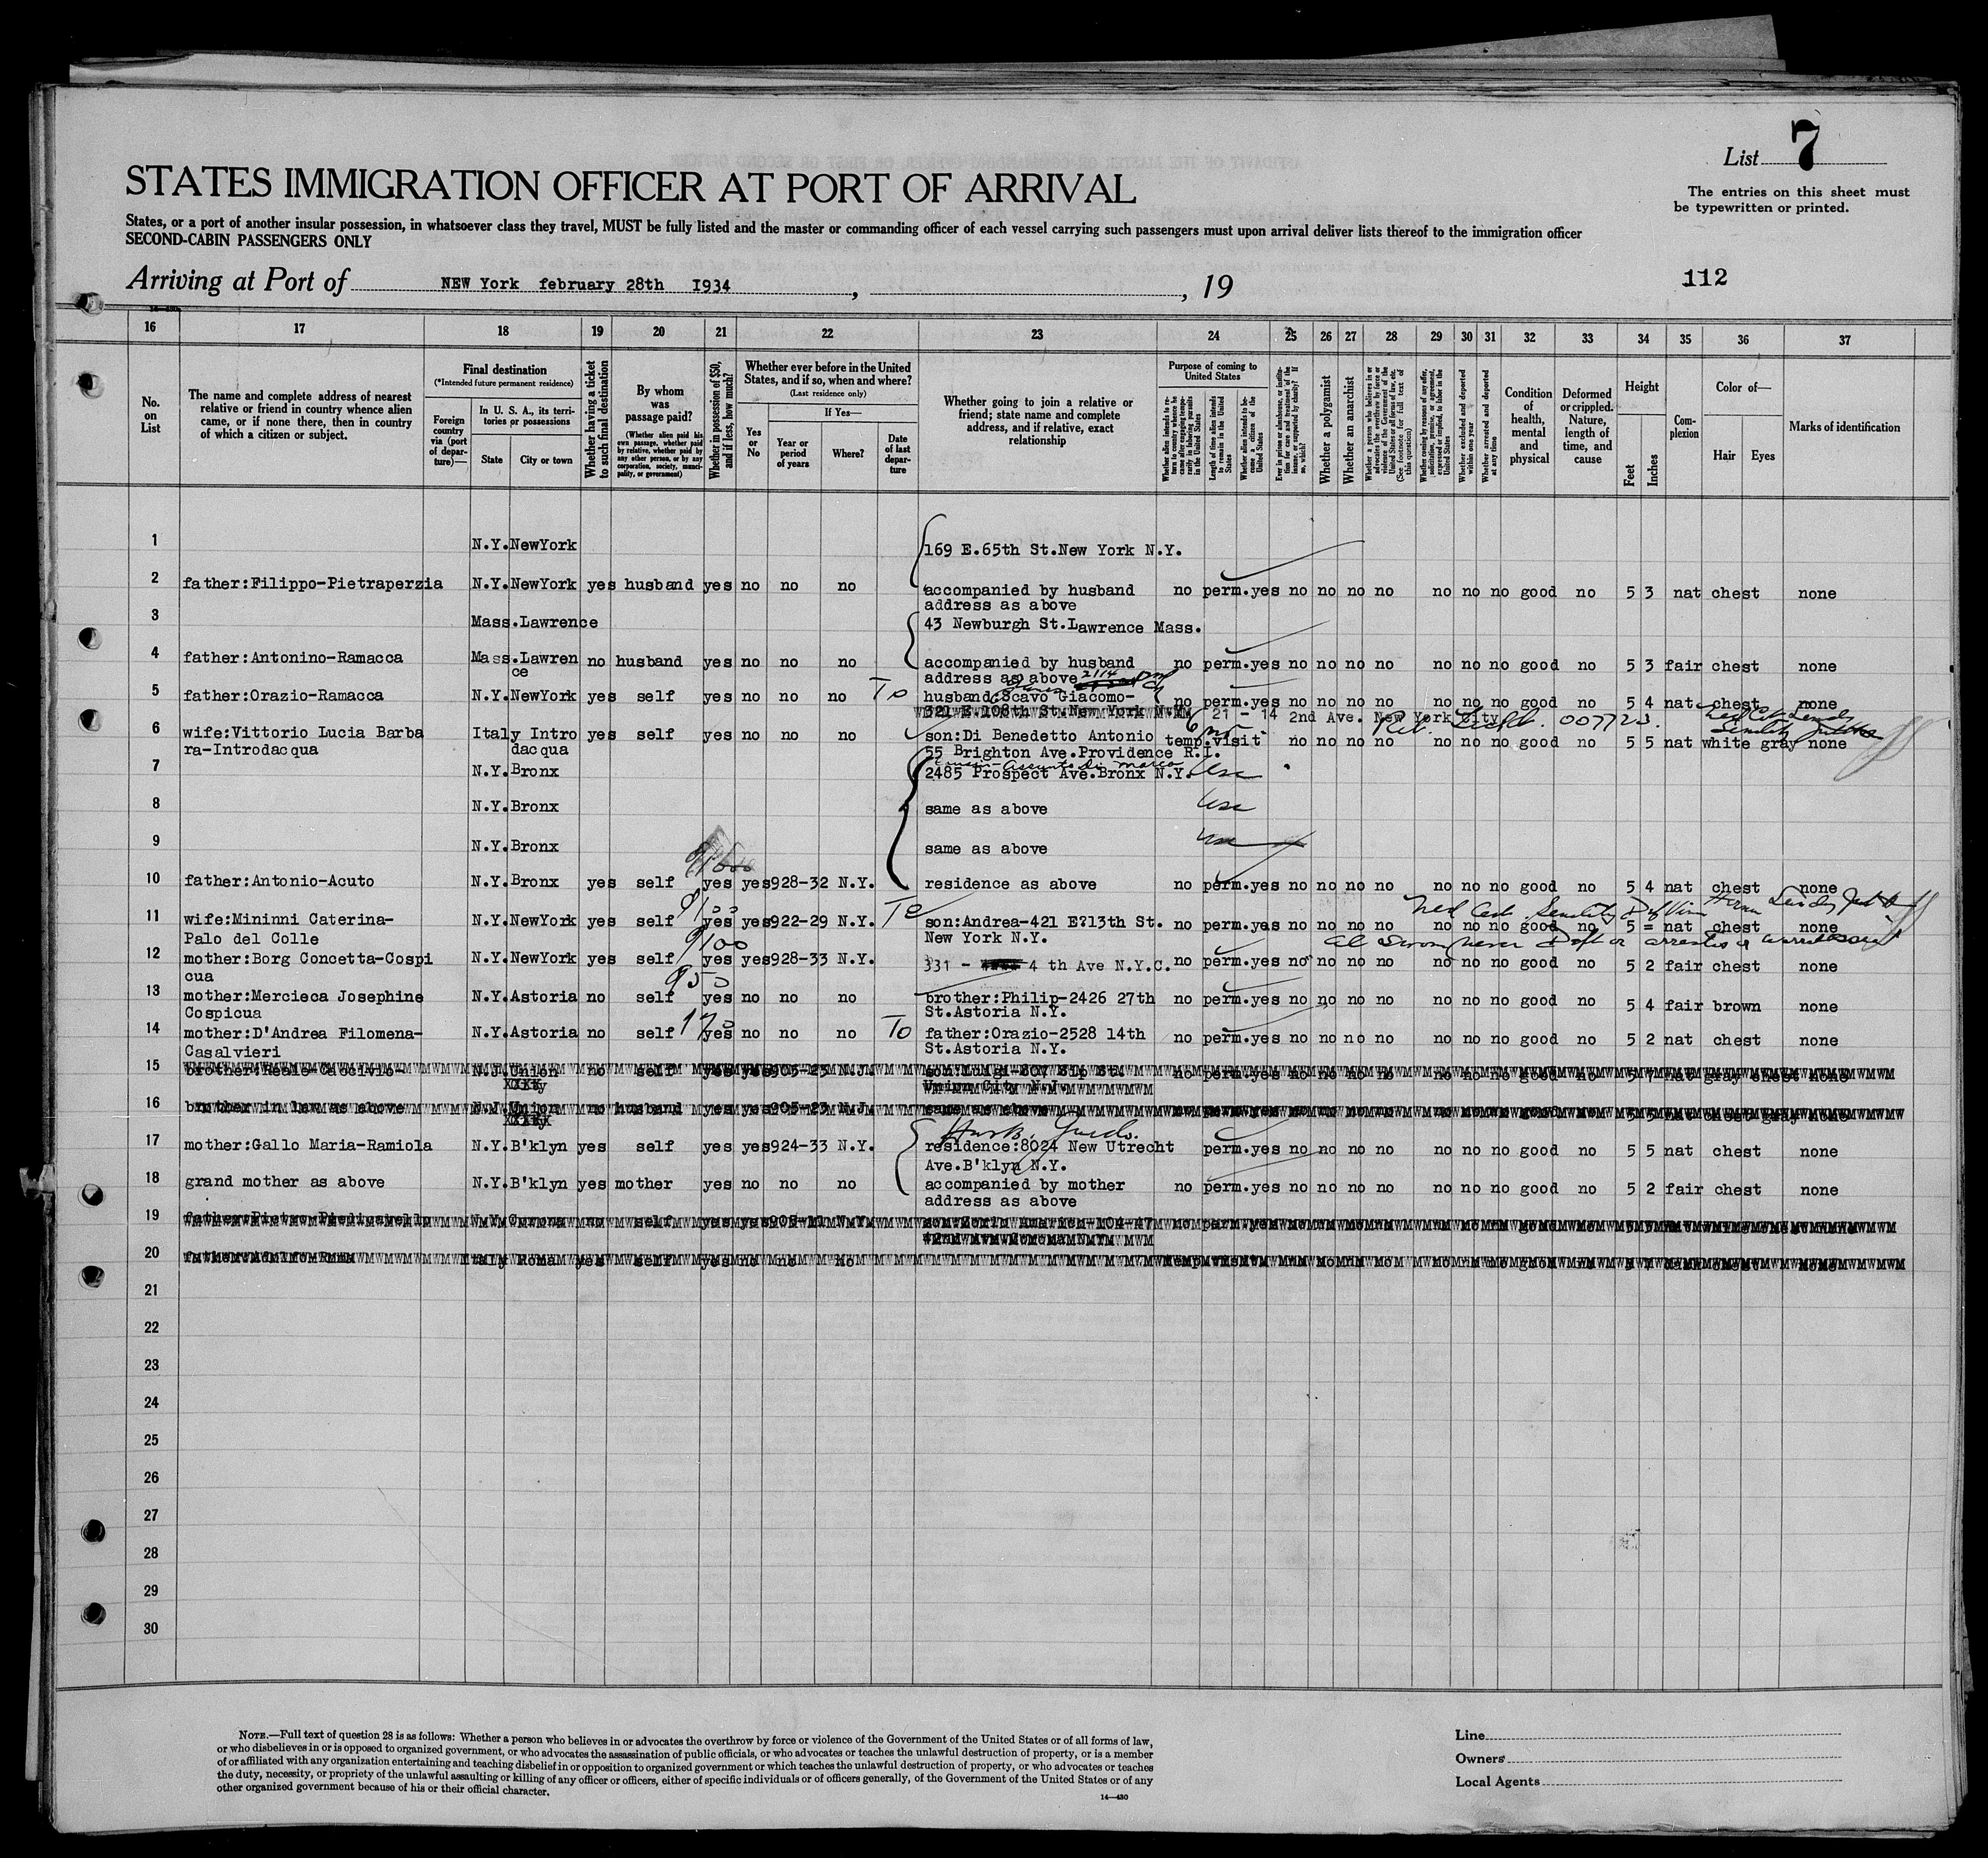 List 7
The entries on this sheet must
be typewritten or printed.
STATES IMMIGRATION OFFICER AT PORT OF ARRIVAL
States, or a port of another insular possession, in whatsoever class they travel, MUST be fully listed and the master or commanding officer of each vessel carrying such passengers must upon arrival deliver lists thereof to the immigration officer
SECOND-CABIN PASSENGERS ONLY
Arriving at Port of NEW York february 28th I934, , 19
112
16 17 18 19 20 21 22 23 24 25 26 27 28 29 30 31 32 33 34 35 36 37
No. on List
The name and complete address of nearest relative or friend in country whence alien came, or if none there, then in country of which a citizen or subject.
Final destination
(*Intended future permanent residence)
Foreign country via (port of departure)—
In U. S. A., its territories or possessions
State
City or town
Whether having a ticket to such final destination
By whom was passage paid?
(Whether alien paid his own passage, whether paid by relative, whether paid by any other person, or by any corporation, society, municipality, or government)
Whether in possession of $50, and if less, how much?
Whether ever before in the United States, and if so, when and where?
(Last residence only)
Yes or No
If Yes—
Year or period of years
Where?
Date of last departure
Whether going to join a relative or friend; state name and complete address, and if relative, exact relationship
Purpose of coming to United States
Whether alien intends to return to country whence he came after engaging temporarily in laboring pursuits in the United States
Length of time alien intends to remain in the United States
Whether alien intends to become a citizen of the United States
Ever in prison or almshouse, or institution for care and treatment of the insane, or supported by charity? If so, which?
Whether a polygamist
Whether an anarchist
Whether a person who believes in or advocates the overthrow by force or violence of the Government of the United States or all forms of law, etc. (See footnote for full text of this question)
Whether coming by reasons of any offer, solicitation, promise, or agreement, expressed or implied, to labor in the United States
Whether excluded and deported within one year
Whether arrested and deported at any time
Condition of health, mental and physical
Deformed or crippled. Nature, length of time, and cause
Height
Feet
Inches
Complexion
Color of—
Hair
Eyes
Marks of identification
1 N.Y. NewYork 169 E.65th St.New York N.Y.
2 father:Filippo-Pietraperzia N.Y. NewYork yes husband yes no no no accompanied by husband no perm.yes no no no no no no no good no 5 3 nat chest none
address as above
3 Mass.Lawrence 43 Newburgh St.Lawrence Mass.
4 father:Antonino-Ramacca Mass.Lawren no husband yes no no no accompanied by husband no perm.yes no no no no no no no good no 5 3 fair chest none
ce address as above 2114
5 father:Orazio-Ramacca N.Y. NewYork yes self yes no no no To husband:Scavo Giacomo- no perm.yes no no no no no no no good no 5 4 nat chest none
321 E.108th St.New York N.Y. 21 - 14 2nd Ave. New York City
6 wife:Vittorio Lucia Barba Italy Intro yes self yes no no no son:Di Benedetto Antonio temp.visit no no no no no no no good no 5 5 nat white gray none
ra-Introdacqua dacqua 55 Brighton Ave.Providence R.I.
7 N.Y. Bronx 2485 Prospect Ave.Bronx N.Y. Usc
8 N.Y. Bronx same as above Usc
9 N.Y. Bronx same as above Usc
10 father:Antonio-Acuto N.Y. Bronx yes self yes yes928-32 N.Y. residence as above no perm.yes no no no no no no no good no 5 4 nat chest none
11 wife:Mininni Caterina- N.Y. NewYork yes self yes yes922-29 N.Y. To son:Andrea-421 E?13th St. no perm.yes no no no no no no no good no 5 = nat chest none
Palo del Colle New York N.Y.
12 mother:Borg Concetta-Cospi N.Y. NewYork yes self yes yes928-33 N.Y. 331 - 4 th Ave N.Y.C. no perm.yes no no no no no no no good no 5 2 fair chest none
cua
13 mother:Mercieca Josephine N.Y. Astoria no self yes no no no brother:Philip-2426 27th no perm.yes no no no no no no no good no 5 4 fair brown none
Cospicua St.Astoria N.Y.
14 mother:D'Andrea Filomena- N.Y. Astoria no self yes no no no To father:Orazio-2528 14th no perm.yes no no no no no no no good no 5 2 nat chest none
Casalvieri St.Astoria N.Y.
15 N.J. Union no self yes yes905-23 N.J. no perm.yes nat gray chest none
Union City N.J.
16 brother in law as above N.J. Union no husband yes yes905-23 N.J. same as above
17 mother:Gallo Maria-Ramiola N.Y. B'klyn yes self yes yes924-33 N.Y. residence:8024 New Utrecht perm.yes no no no no no no no good no 5 5 nat chest none
Ave.B'klyn N.Y.
18 grand mother as above N.Y. B'klyn yes mother yes no no no accompanied by mother no perm.yes no no no no no no no good no 5 2 fair chest none
address as above
19 N.Y. Corona no self yes
20 Italy Roma yes self yes no no no
21
22
23
24
25
26
27
28
29
30
NOTE.—Full text of question 28 is as follows: Whether a person who believes in or advocates the overthrow by force or violence of the Government of the United States or of all forms of law,
or who disbelieves in or is opposed to organized government, or who advocates the assassination of public officials, or who advocates or teaches the unlawful destruction of property, or is a member
of or affiliated with any organization entertaining and teaching disbelief in or opposition to organized government or which teaches the unlawful destruction of property, or who advocates or teaches
the duty, necessity, or propriety of the unlawful assaulting or killing of any officer or officers, either of specific individuals or of officers generally, of the Government of the United States or of any
other organized government because of his or their official character.
14—430
Line
Owners
Local Agents